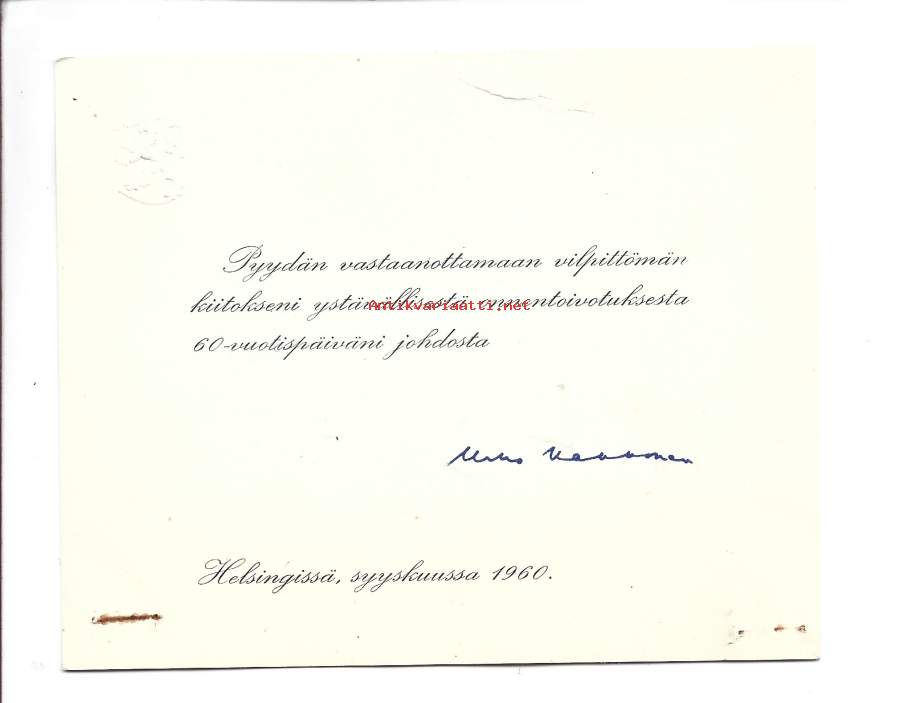 Pyydän vastaanottamaan vilpittömän
kiitokseni ystävällisestä onnentoivotuksesta
Antikvariaatti.net
60-vuotispäiväni johdosta
Urho Kekkonen
Helsingissä, syyskuussa 1960.